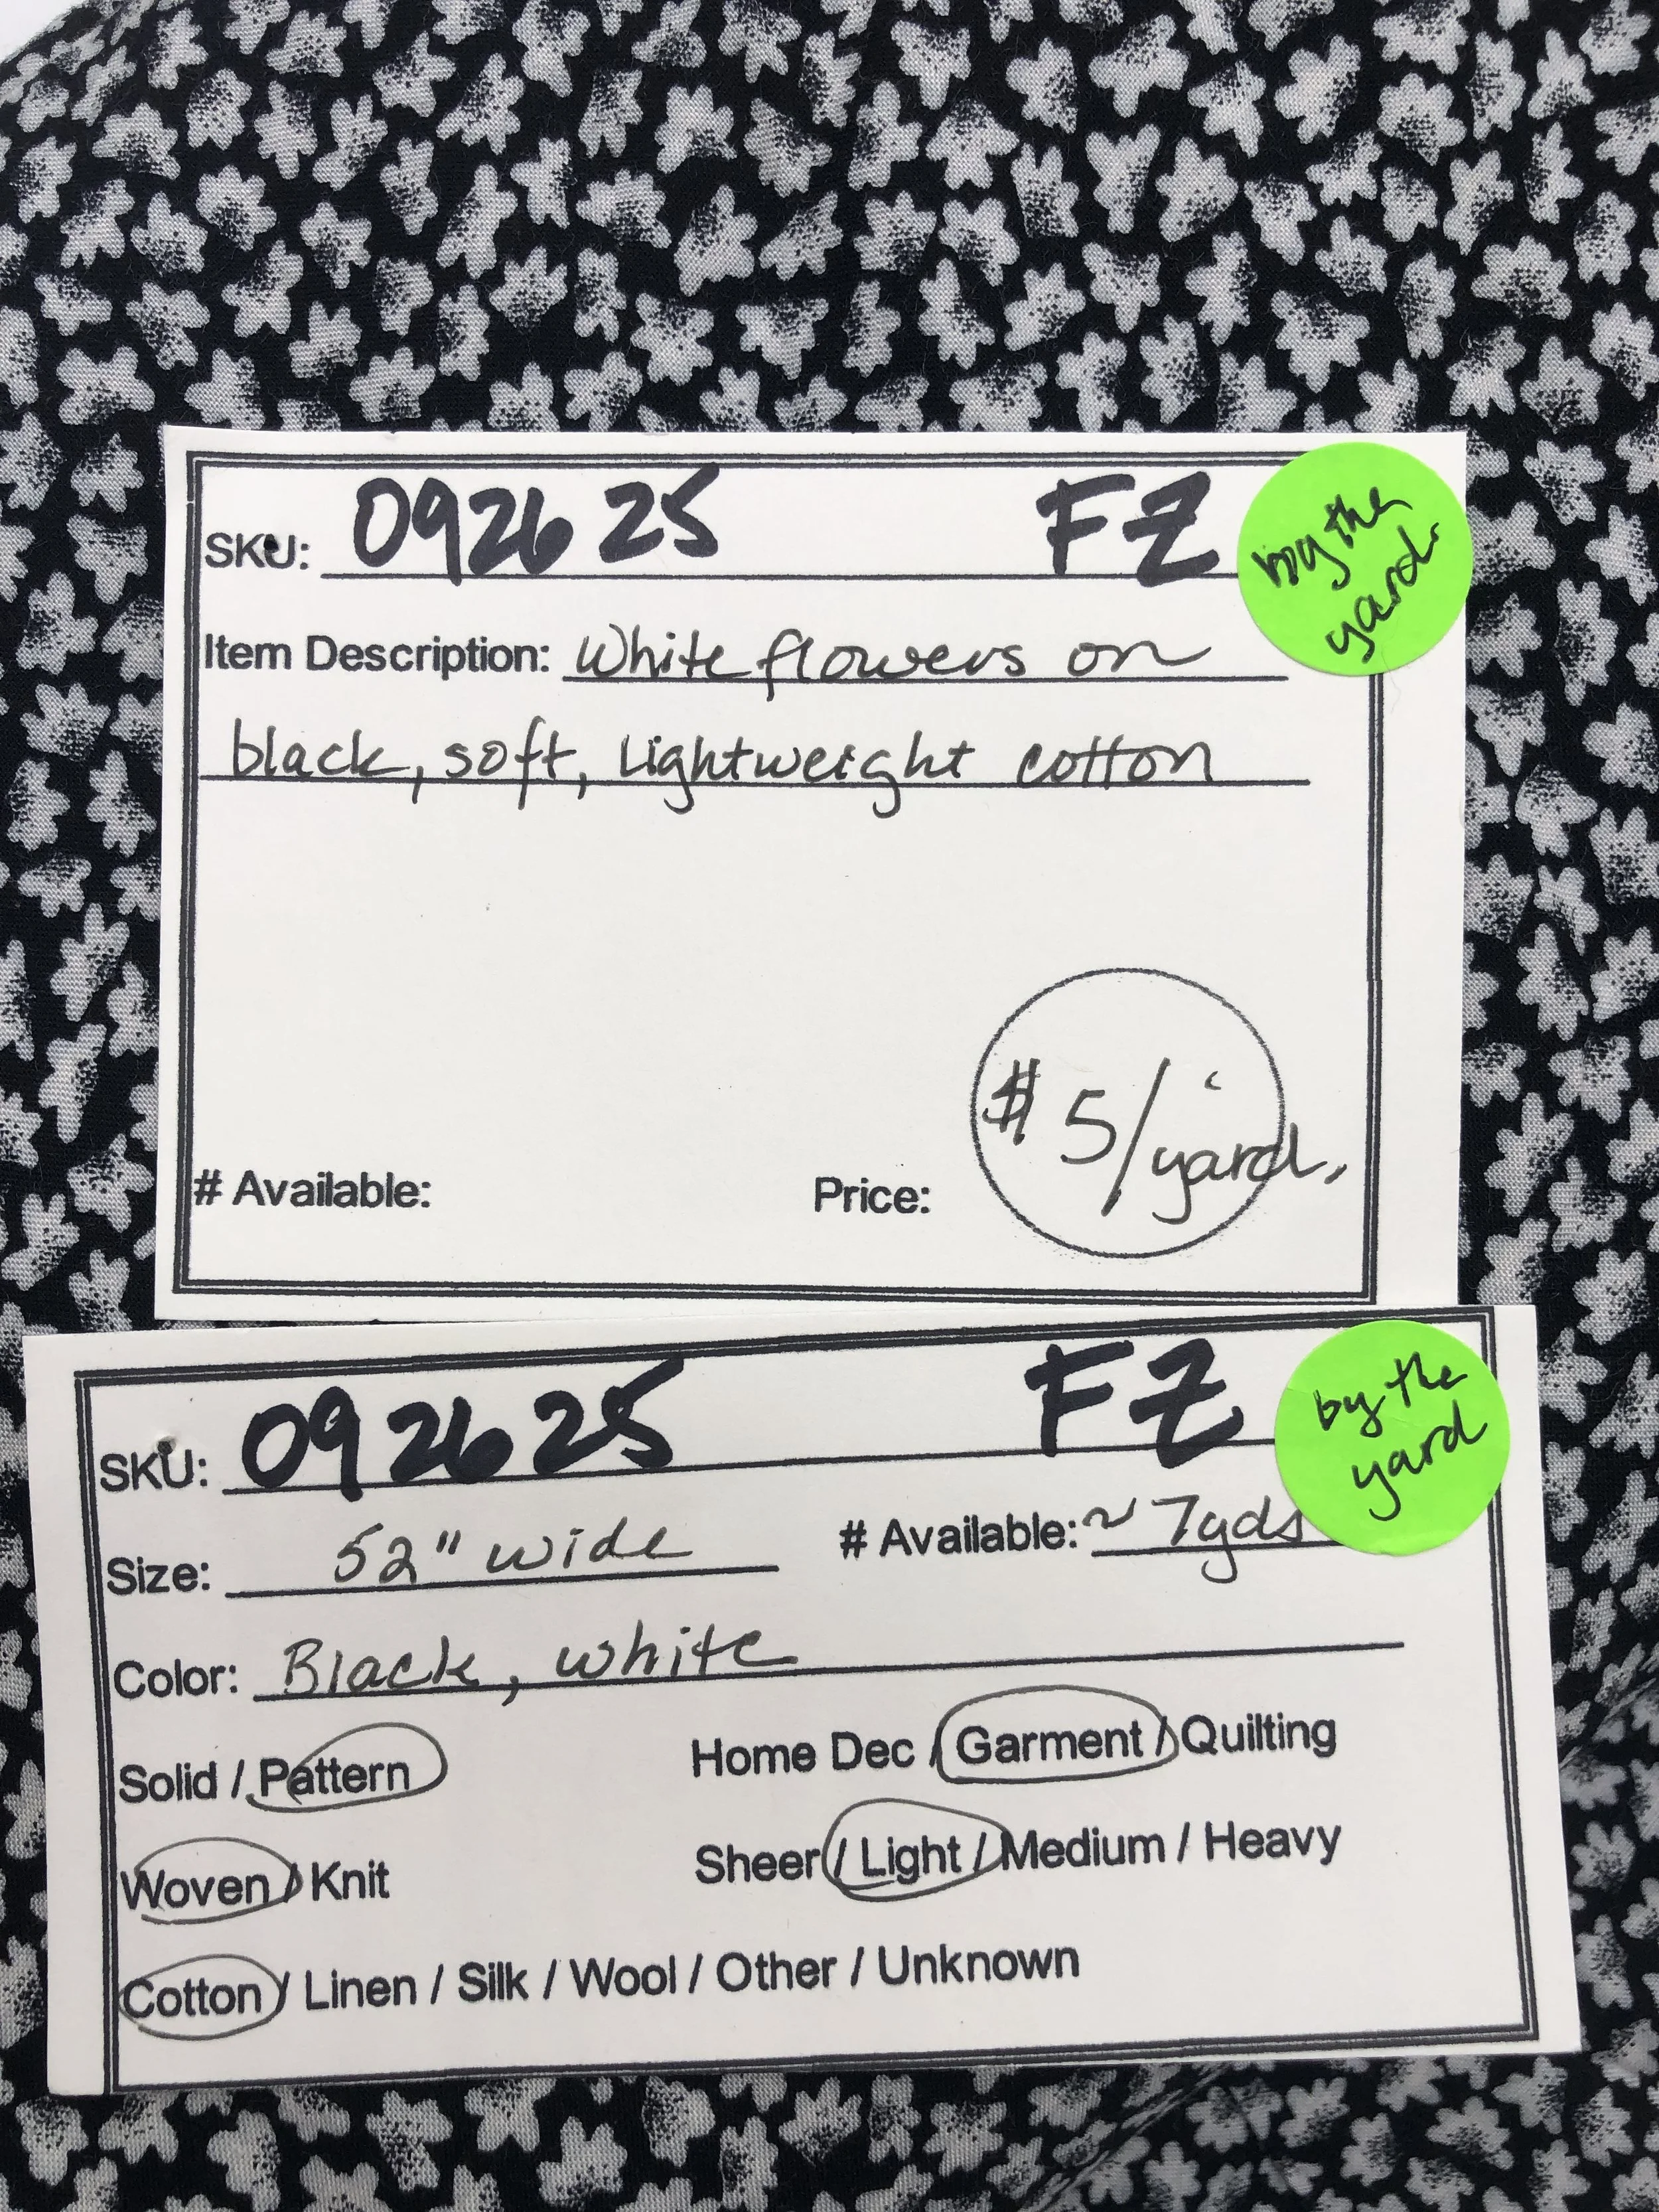 SKU: 092625 FZ
by the
yard.
Item Description: White flowers on
black, soft, lightweight cotton
# Available: Price: $5/yard.
SKU: 092625 FZ
by the
yard
Size: 52" wide # Available: ~7yds
Color: Black, white
Solid / Pattern Home Dec / Garment / Quilting
Woven / Knit Sheer / Light / Medium / Heavy
Cotton / Linen / Silk / Wool / Other / Unknown